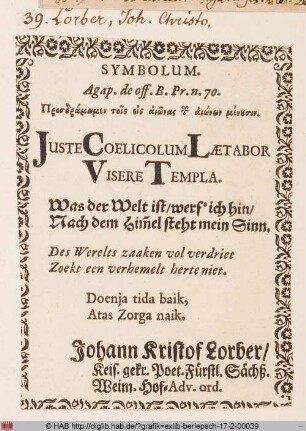 39. Lorber, Joh. Christo.
SYMBOLUM.
Agap. de off. B. Pr. n. 70.
Προσδράμωμεν τοῖς εἰς αἰῶνας αἰώνων μένουσιν.
JUSTE COELICOLUM LÆTABOR
VISERE TEMPLA.
Was der Welt ist/werf' ich hin/
Nach dem Him̃el steht mein Sinn.
Des Werelts zaaken vol verdriet
Zoekt een verhemelt herte niet.
Doenja tida baik,
Atas Zorga naik.
Johann Kristof Lorber/
Keis. gekr. Poet. Fürstl. Sächß.
Weim. Hof-Adv. ord.
© HAB http://diglib.hab.de/?grafik=exlib-berlepsch-17-2-00039